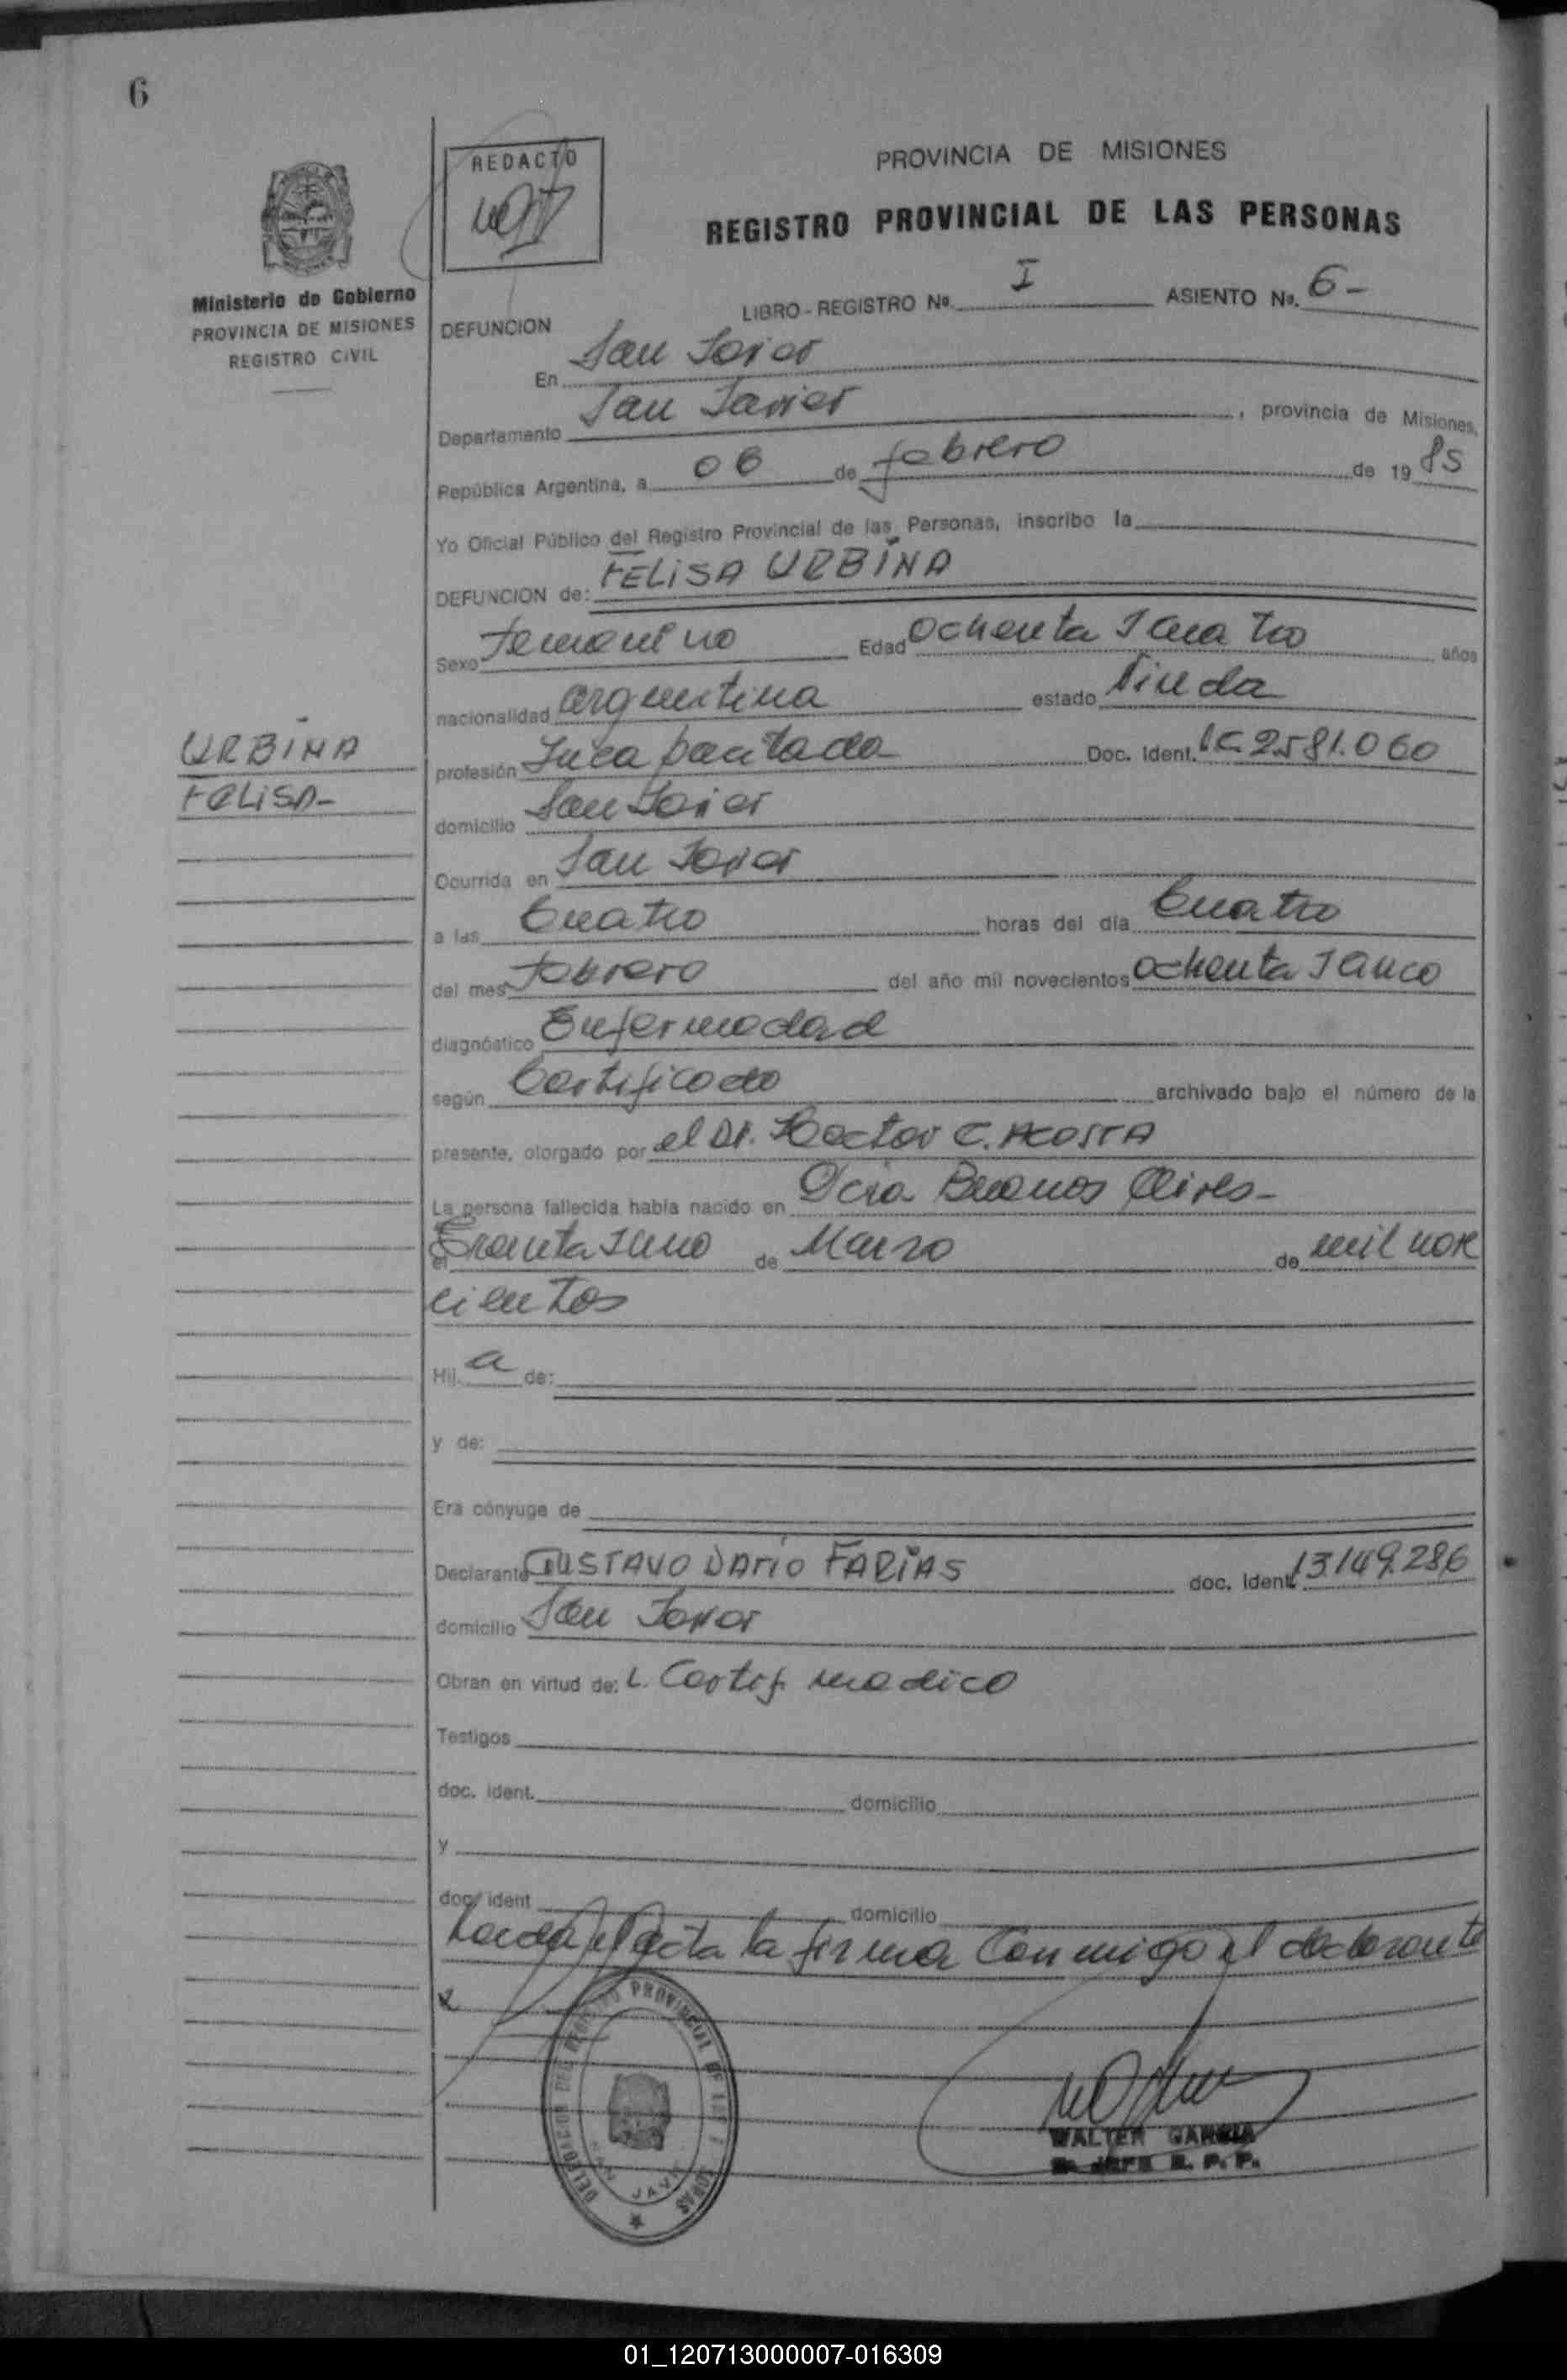 6
REDACTO
PROVINCIA DE MISIONES
REGISTRO PROVINCIAL DE LAS PERSONAS
Ministerio de Gobierno
PROVINCIA DE MISIONES
REGISTRO CIVIL
LIBRO - REGISTRO Nº. I ASIENTO Nº. 6-
DEFUNCION
En San Javier
Departamento San Javier, provincia de Misiones,
República Argentina, a 06 de febrero de 1985
Yo Oficial Público del Registro Provincial de las Personas, inscribo la
DEFUNCION de: FELISA URBINA
Sexo Femenino Edad Ochenta y cuatro años
nacionalidad argentina estado Viuda
URBINA
FELISA-
profesión Incapacitada Doc. Ident. LC 2.581.060
domicilio San Javier
Ocurrida en San Javier
a las Cuatro horas del día Cuatro
del mes Febrero del año mil novecientos Ochenta y cinco
diagnóstico Enfermedad
según Certificado archivado bajo el número de la
presente, otorgado por el Dr. Hector C. ACOSTA
La persona fallecida había nacido en Pcia Buenos Aires-
el Treinta y uno de Marzo de mil nove
cientos
Hij a de:
y de:
Era cónyuge de
Declarante GUSTAVO DARIO FARIAS doc. Ident. 13.149.286
domicilio San Javier
Obran en virtud de: L. Certif. medico
Testigos
doc. ident. domicilio
y
doc. ident domicilio
Leida el acta la firma Conmigo el declarante
DELEGACION DEL REGISTRO PROVINCIAL DE LAS PERSONAS
SAN JAVIER
WALTER GARCIA
JEFE R. P. P.
01_120713000007-016309